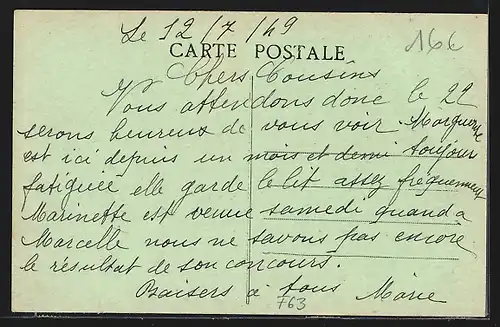 Le 12/7/49
CARTE POSTALE
166
Chers Cousins
Vous attendons donc le 22
serons heureux de vous voir. Marguerite
est ici depuis un mois et demi toujour
fatiguée elle garde le lit assez fréquemment
Marinette est venue samedi quand a
Marcelle nous ne savons pas encore
le résultat de son concours.
Baisers à tous Marie
F63